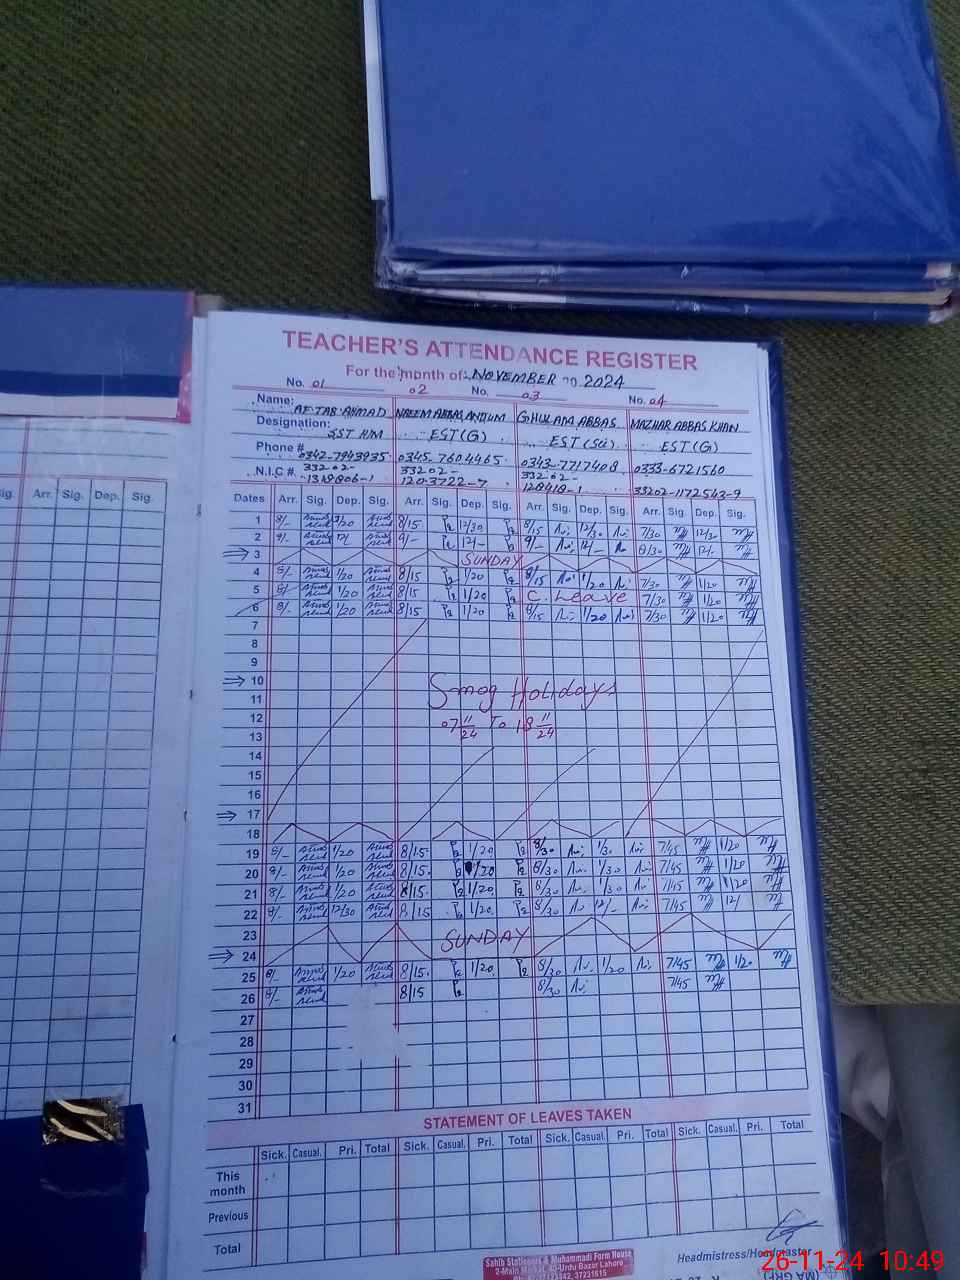 TEACHER'S ATTENDANCE REGISTER
For the month of: NOVEMBER 20 2024
No. 01 02 No. 03 No. 04
Name: AFTAB AHMAD NAEEM ABBAS ANJUM GHULAM ABBAS MAZHAR ABBAS KHAN
Designation: SST H/M EST(G) EST(Sci) EST(G)
Phone # 0342-7943935 0345-7604465 0343-7717408 0333-6721560
N.I.C #. 33202- 33202- 33202- 33202-1172543-9
1318806-1 1203722-7 128418-1
Sig. Arr. Sig. Dep. Sig.
Dates Arr. Sig. Dep. Sig. Arr. Sig. Dep. Sig. Arr. Sig. Dep. Sig. Arr. Sig. Dep. Sig.
1 8/- 8/15 12/30 8/15 12/30 7/30 12/30
2 9/- 9/- 12/- 9/- 12/- 8/30 12/-
3 SUNDAY
4 8/- 1/20 8/15 1/20 8/15 1/20 7/30 1/20
5 8/- 1/20 8/15 1/20 C. Leave 7/30 1/20
6 8/- 1/20 8/15 1/20 8/15 1/20 7/30 1/20
7
8
9
10 Smog Holidays
11
12 07 11/24 To 18 11/24
13
14
15
16
17
18
19 8/- 1/20 8/15 1/20 8/30 1/30 7/45 1/20
20 8/- 1/20 8/15 1/20 8/30 1/30 7/45 1/20
21 8/- 1/20 8/15 1/20 8/30 1/30 7/45 1/20
22 8/- 12/30 8/15 1/20 8/30 12/- 7/45 12/
23 SUNDAY
24
25 8/- 1/20 8/15 1/20 8/30 1/20 7/45 1/20
26 8/- 8/15 8/30 7/45
27
28
29
30
31
STATEMENT OF LEAVES TAKEN
Sick. Casual. Pri. Total Sick. Casual. Pri. Total Sick. Casual. Pri. Total Sick. Casual. Pri. Total
This
month
Previous
Total
Sahib Stationers & Muhammadi Form House
2-Main Market, 40-Urdu Bazar Lahore
Headmistress/Headmaster
26-11-24 10:49